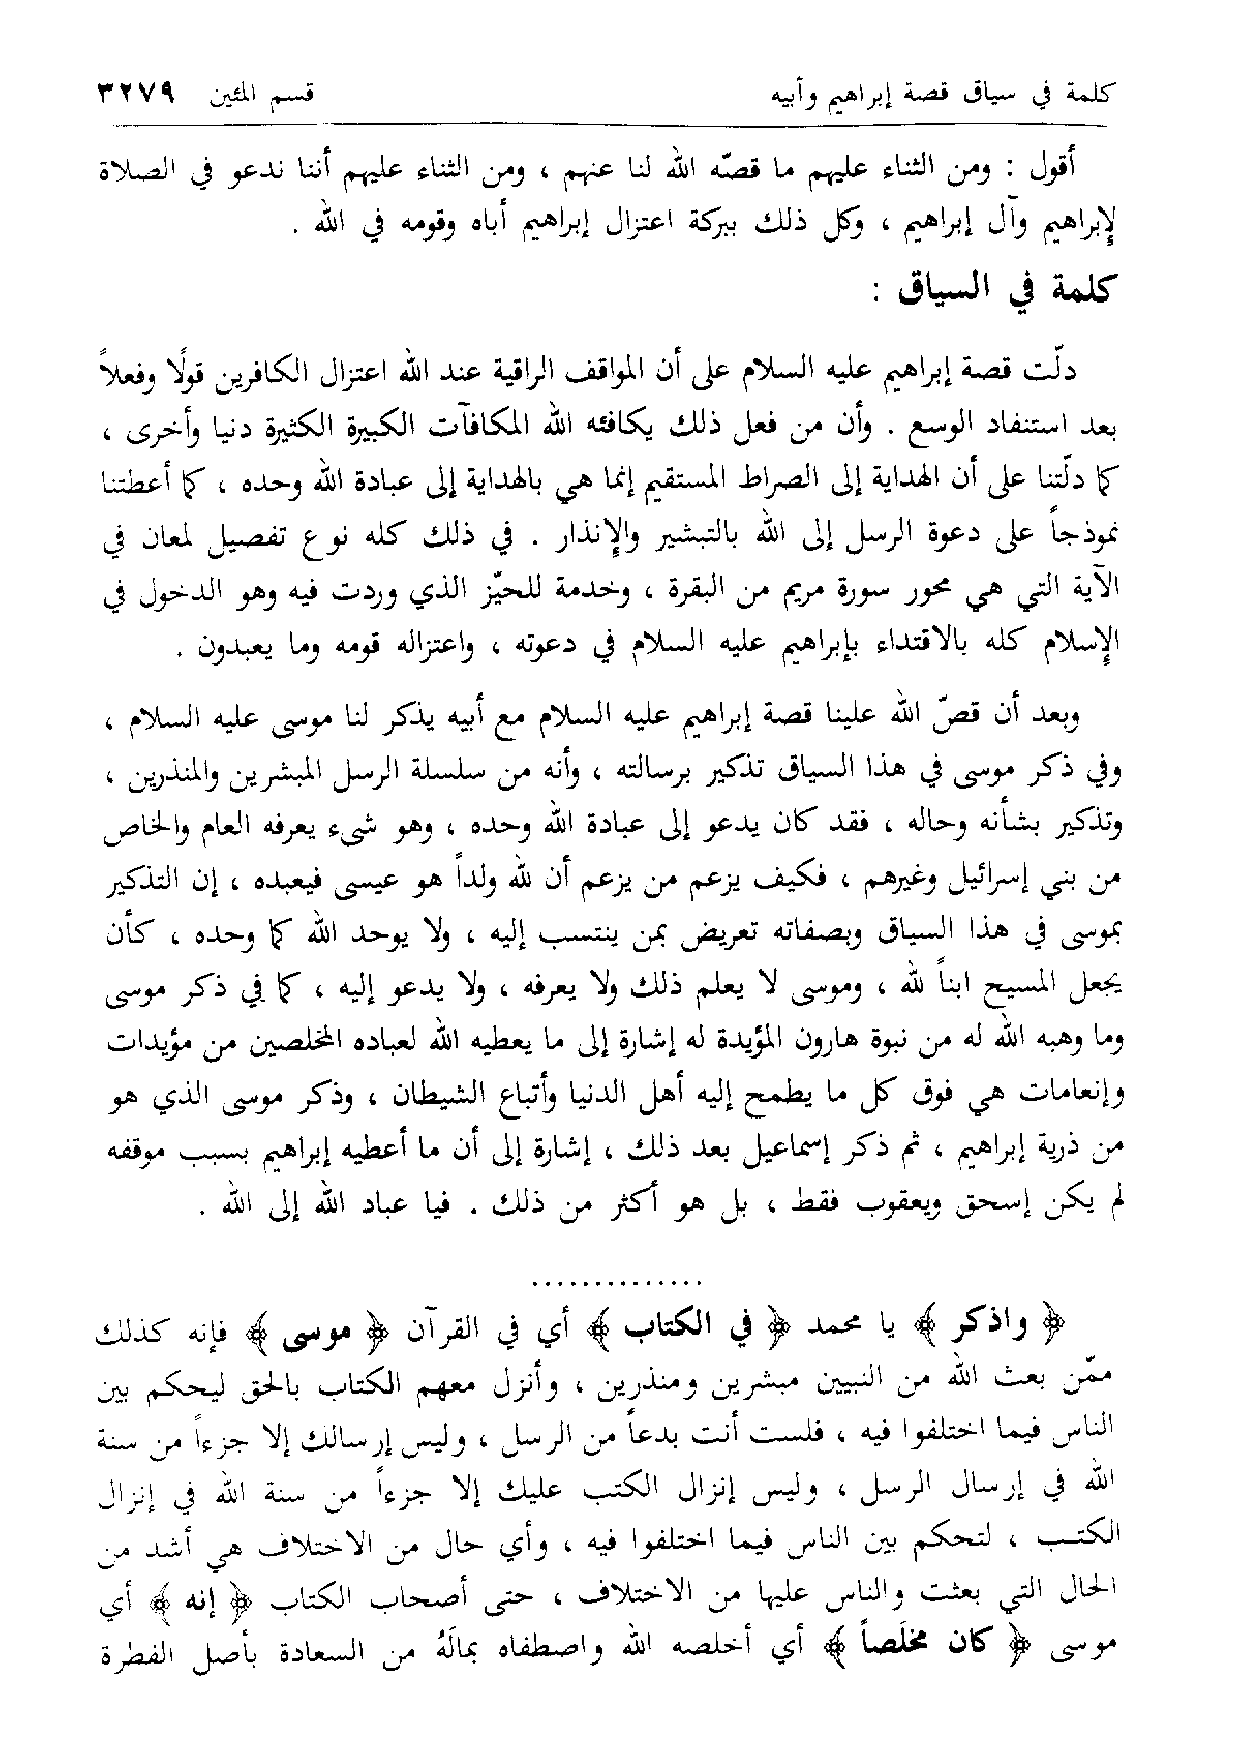 كلمة في سياق قصة إبراهيم وأبيه قسم المئين ٣٢٧٩
أقول : ومن الثناء عليهم ما قصّه الله لنا عنهم ، ومن الثناء عليهم أننا ندعو في الصلاة
لإبراهيم وآل إبراهيم ، وكل ذلك ببركة اعتزال إبراهيم أباه وقومه في الله .
كلمة في السياق :
دلّت قصة إبراهيم عليه السلام على أن المواقف الراقية عند الله اعتزال الكافرين قولًا وفعلاً
بعد استنفاد الوسع . وأن من فعل ذلك يكافئه الله المكافآت الكبيرة الكثيرة دنيا وأخرى ،
كما دلّتنا على أن الهداية إلى الصراط المستقيم إنما هي بالهداية إلى عبادة الله وحده ، كما أعطتنا
نموذجاً على دعوة الرسل إلى الله بالتبشير والإنذار . في ذلك كله نوع تفصيل لمعان في
الآية التي هي محور سورة مريم من البقرة ، وخدمة للحيّز الذي وردت فيه وهو الدخول في
الإسلام كله بالاقتداء بإبراهيم عليه السلام في دعوته ، واعتزاله قومه وما يعبدون .
وبعد أن قصّ الله علينا قصة إبراهيم عليه السلام مع أبيه يذكر لنا موسى عليه السلام ،
وفي ذكر موسى في هذا السياق تذكير برسالته ، وأنه من سلسلة الرسل المبشرين والمنذرين ،
وتذكير بشأنه وحاله ، فقد كان يدعو إلى عبادة الله وحده ، وهو شيء يعرفه العام والخاص
من بني إسرائيل وغيرهم ، فكيف يزعم من يزعم أن لله ولداً هو عيسى فيعبده ، إن التذكير
بموسى في هذا السياق وبصفاته تعريض بمن ينتسب إليه ، ولا يوحد الله كما وحده ، كأن
يجعل المسيح ابناً لله ، وموسى لا يعلم ذلك ولا يعرفه ، ولا يدعو إليه ، كما في ذكر موسى
وما وهبه الله له من نبوة هارون المؤيدة له إشارة إلى ما يعطيه الله لعباده المخلصين من مؤيدات
وإنعامات هي فوق كل ما يطمح إليه أهل الدنيا وأتباع الشيطان ، وذكر موسى الذي هو
من ذرية إبراهيم ، ثم ذكر إسماعيل بعد ذلك ، إشارة إلى أن ما أعطيه إبراهيم بسبب موقفه
لم يكن إسحق ويعقوب فقط ، بل هو أكثر من ذلك . فيا عباد الله إلى الله .
..............
﴿ واذكر ﴾ يا محمد ﴿ في الكتاب ﴾ أي في القرآن ﴿ موسى ﴾ فإنه كذلك
ممّن بعث الله من النبيين مبشرين ومنذرين ، وأنزل معهم الكتاب بالحق ليحكم بين
الناس فيما اختلفوا فيه ، فلست أنت بدعاً من الرسل ، وليس إرسالك إلا جزءاً من سنة
الله في إرسال الرسل ، وليس إنزال الكتب عليك إلا جزءاً من سنة الله في إنزال
الكتب ، لتحكم بين الناس فيما اختلفوا فيه ، وأي حال من الاختلاف هي أشد من
الحال التي بعثت والناس عليها من الاختلاف ، حتى أصحاب الكتاب ﴿ إنه ﴾ أي
موسى ﴿ كان مخلَصاً ﴾ أي أخلصه الله واصطفاه بمالَهُ من السعادة بأصل الفطرة